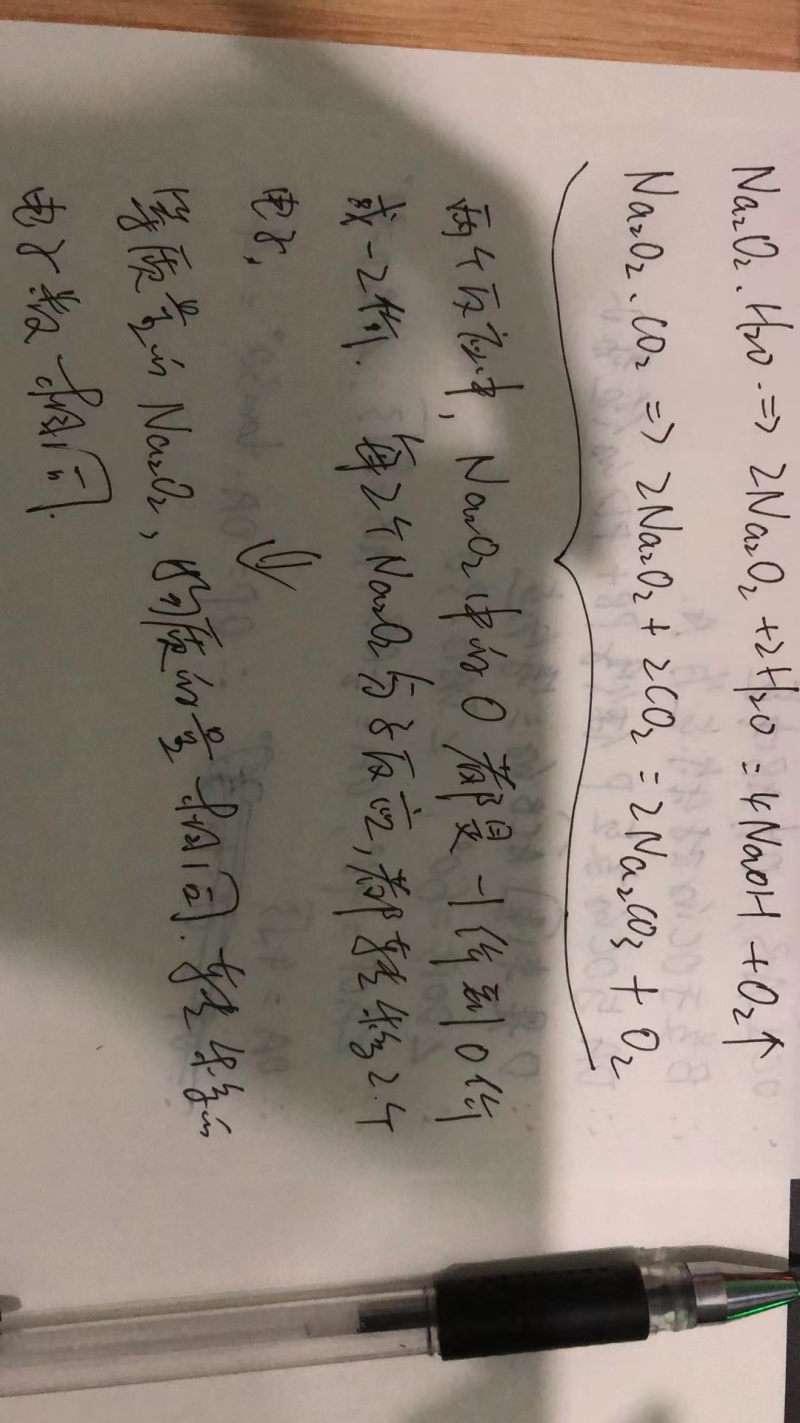 Na₂O₂、H₂O ⇒ 2Na₂O₂ + 2H₂O = 4NaOH + O₂↑
Na₂O₂、CO₂ ⇒ 2Na₂O₂ + 2CO₂ = 2Na₂CO₃ + O₂
两个反应中, Na₂O₂中的O都是-1价到0价
或-2价. 每2个Na₂O₂分子反应, 都转移2个
电子,
⇓
等质量的Na₂O₂, 物质的量相同. 转移的
电子数相同.